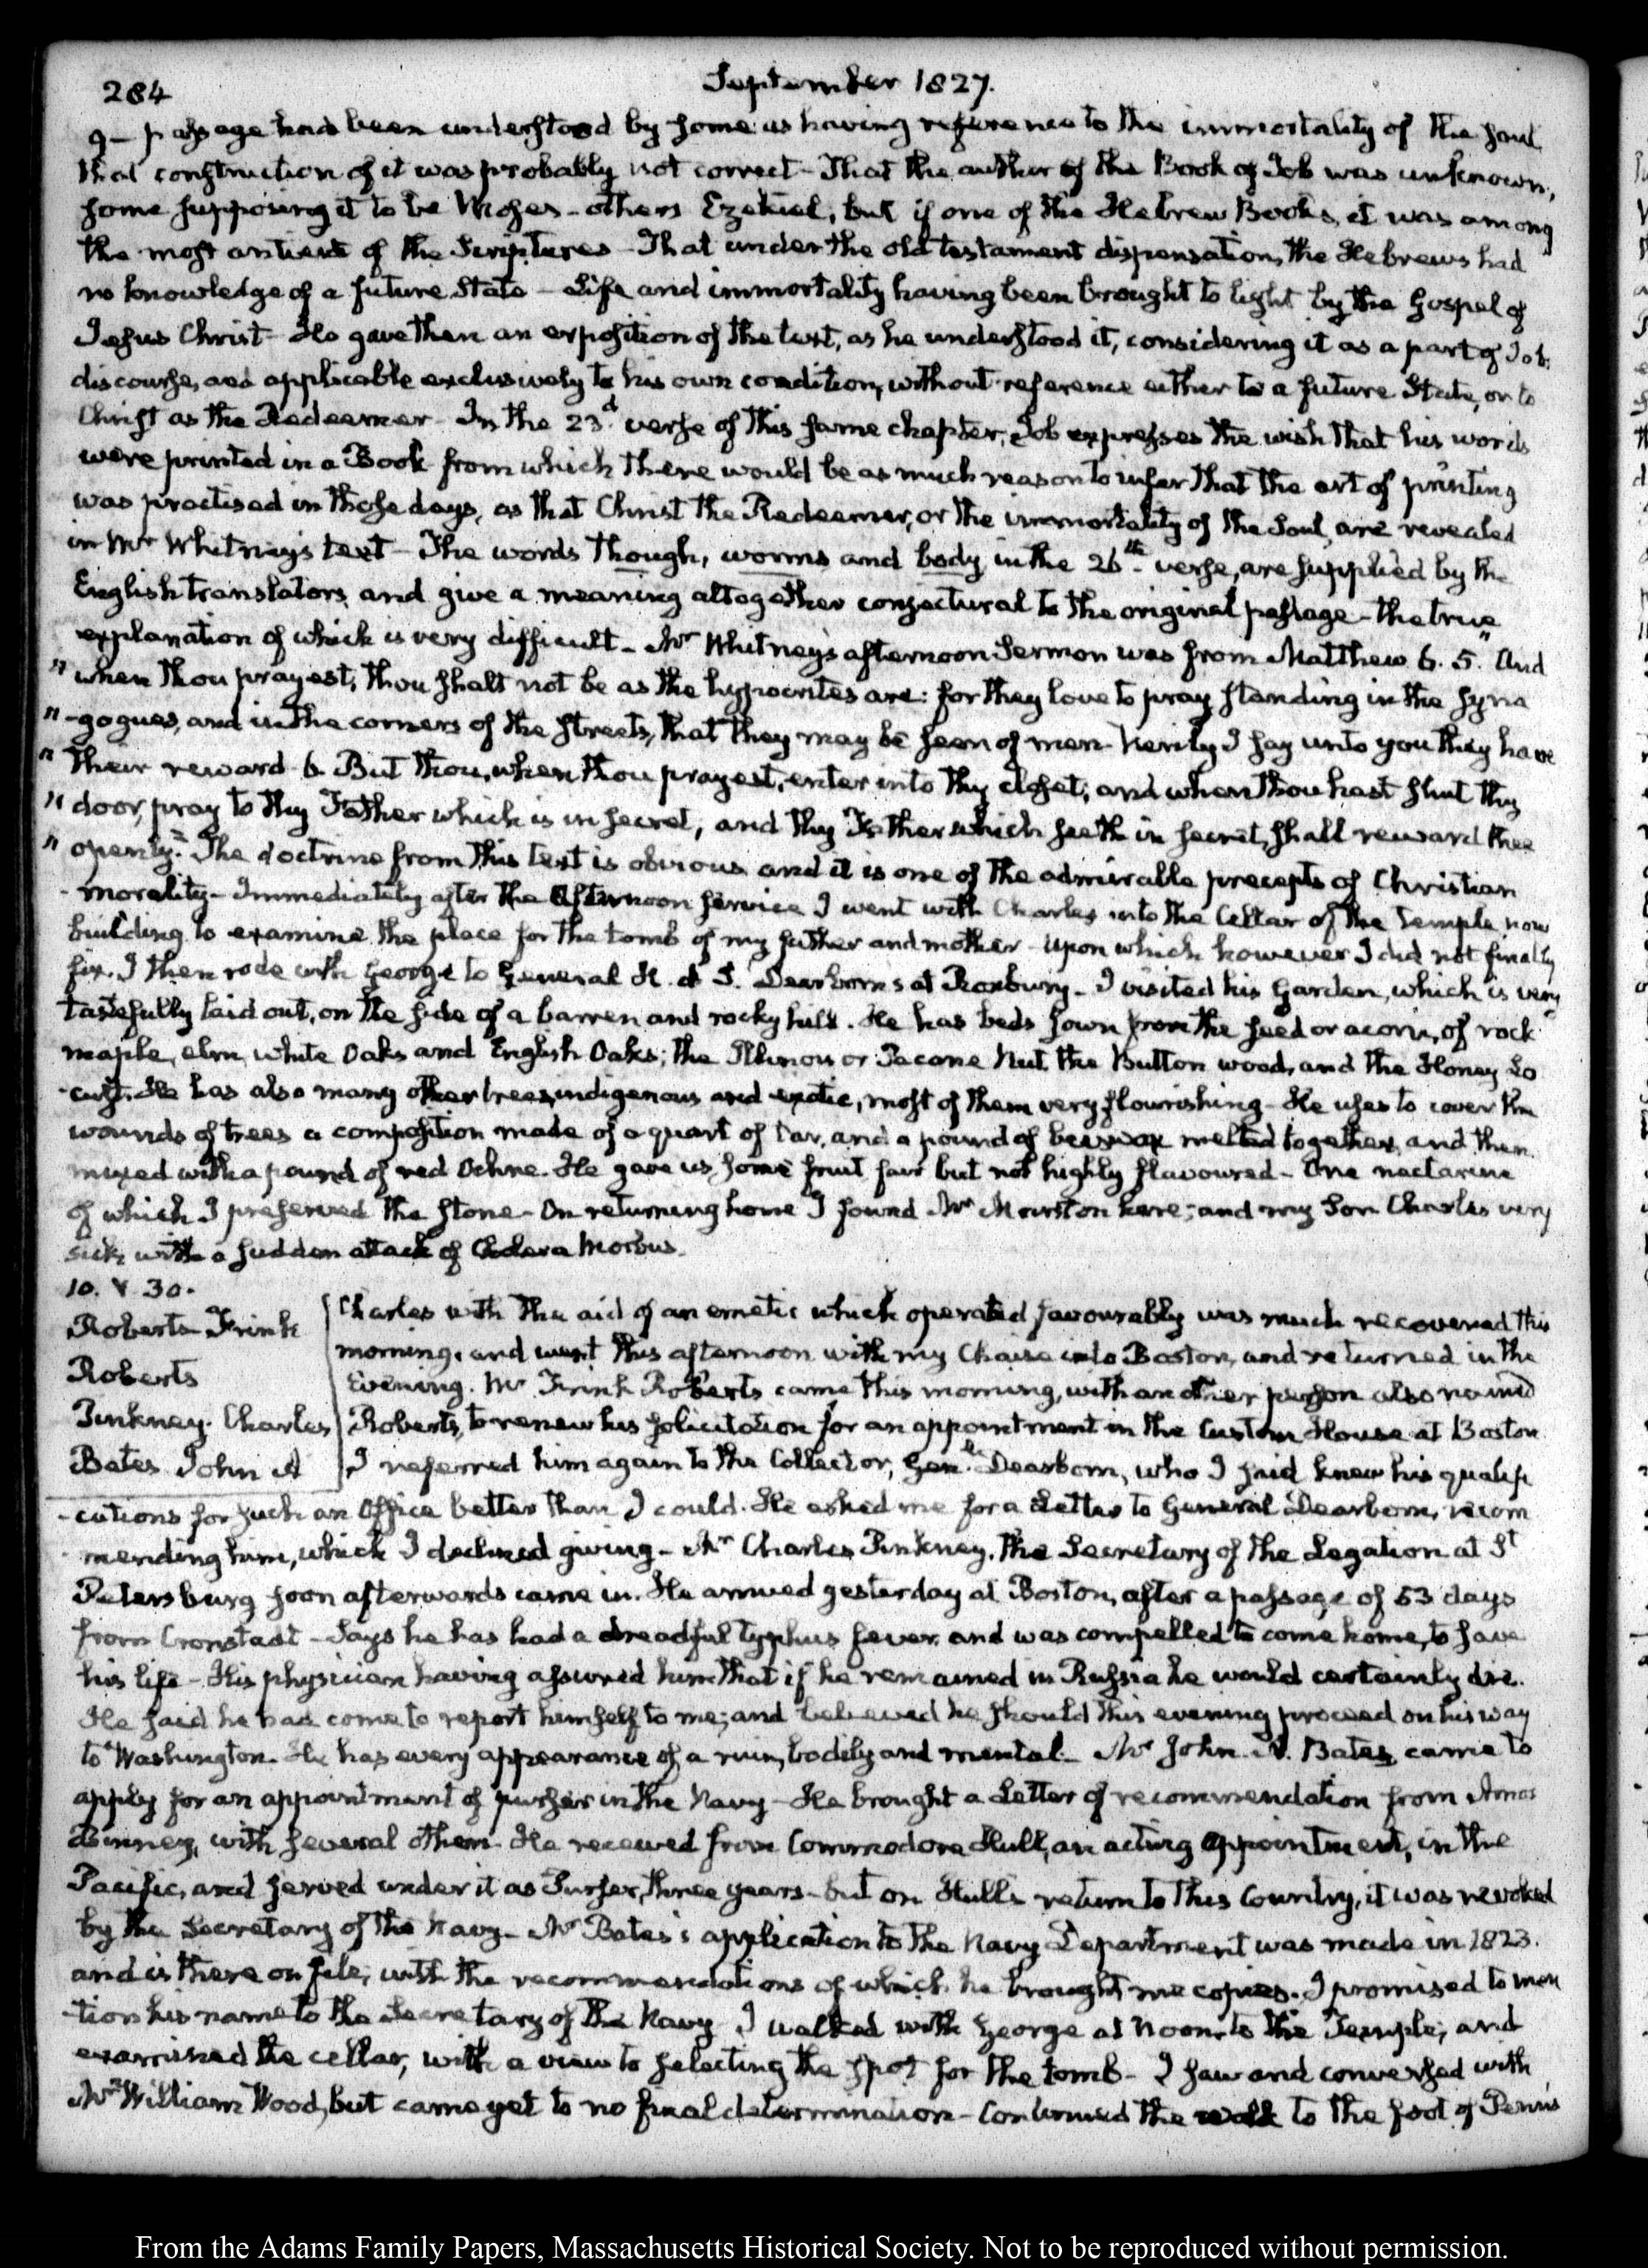 284
September 1827.
9 — passage had been understood by some as having reference to the immortality of the soul
that construction of it was probably not correct — That the author of the Book of Job was unknown,
some supposing it to be Moses — others Ezekiel, but if one of the Hebrew Books, it was among
the most antient of the Scriptures — That under the old testament dispensation, the Hebrews had
no knowledge of a future State — Life and immortality having been brought to light by the Gospel of
Jesus Christ — He gave then an exposition of the text, as he understood it, considering it as a part of Job's
discourse, and applicable exclusively to his own condition, without reference either to a future State, or to
Christ as the Redeemer — In the 23d. verse of this same chapter, Job expresses the wish that his words
were printed in a Book from which there would be as much reason to infer that the art of printing
was practised in those days, as that Christ the Redeemer, or the immortality of the Soul, are revealed
in Mr Whitney's text — The words though, worms and body in the 26th. verse, are supplied by the
English translators and give a meaning altogether conjectural to the original passage — the true
explanation of which is very difficult — Mr Whitney's afternoon Sermon was from Matthew 6. 5. "And
" when thou prayest, thou shalt not be as the hypocrites are: for they love to pray standing in the syna
" -gogues, and in the corners of the streets, that they may be seen of men — Verily I say unto you they have
" their reward — 6. But thou, when thou prayest, enter into thy closet, and when thou hast shut thy
" door, pray to thy Father which is in secret, and thy Father which seeth in secret, shall reward thee
" openly." The doctrine from this text is obvious and it is one of the admirable precepts of Christian
- morality — Immediately after the afternoon service I went with Charles into the Cellar of the Temple now
building to examine the place for the tomb of my father and mother — upon which however I did not finally
fix. I then rode with George to General H. A. S. Dearborn's at Roxbury — I visited his Garden, which is very
tastefully laid out, on the side of a barren and rocky hill. He has beds sown from the seed or acorn, of rock
maple, elm, white Oaks and English Oaks; the Illinois or Pacane Nut, the Button wood, and the Honey Lo
-cust. He has also many other trees, indigenous and exotic, most of them very flourishing — He uses to cover the
wounds of trees a composition made of a quart of tar, and a pound of beeswax melted together, and then
mixed with a pound of red Ochre. He gave us some fruit fair but not highly flavoured — One nectarine
of which I preserved the stone — On returning home I found Mr Marston here; and my Son Charles very
sick, with a sudden attack of Cholera Morbus.
10. V. 30.
Roberts Frink
Roberts
Pinkney. Charles
Bates John A
Charles with the aid of an emetic which operated favourably was much recovered this
morning, and went this afternoon with my Chaise into Boston, and returned in the
Evening. Mr Frink Roberts came this morning, with another person also named
Roberts, to renew his solicitation for an appointment in the Custom House at Boston
I referred him again to the Collector, Genl. Dearborn, who I said knew his qualifi
-cations for such an Office better than I could. He asked me for a Letter to General Dearborn, recom
mending him, which I declined giving — Mr Charles Pinkney, the Secretary of the Legation at St
Petersburg soon afterwards came in. He arrived yesterday at Boston, after a passage of 53 days
from Cronstadt — Says he has had a dreadful typhus fever, and was compelled to come home, to save
his life — His physician having assured him that if he remained in Russia he would certainly die.
He said he had come to report himself to me; and believed he should this evening proceed on his way
to Washington. He has every appearance of a ruin, bodily and mental — Mr John A. Bates came to
apply for an appointment of purser in the Navy — He brought a Letter of recommendation from Amos
Binney, with several others. He received from Commodore Hull, an acting appointment, in the
Pacific, and served under it as Purser, three years — but on Hull's return to this Country, it was revoked
by the Secretary of the Navy — Mr Bates's application to the Navy Department was made in 1823.
and is there on file, with the recommendations of which he brought me copies. I promised to men
-tion his name to the Secretary of the Navy — I walked with George at Noon, to the Temple, and
examined the cellar, with a view to selecting the spot for the tomb — I saw and conversed with
Mr William Wood, but came yet to no final determination — Continued the walk to the foot of Penn's
From the Adams Family Papers, Massachusetts Historical Society. Not to be reproduced without permission.